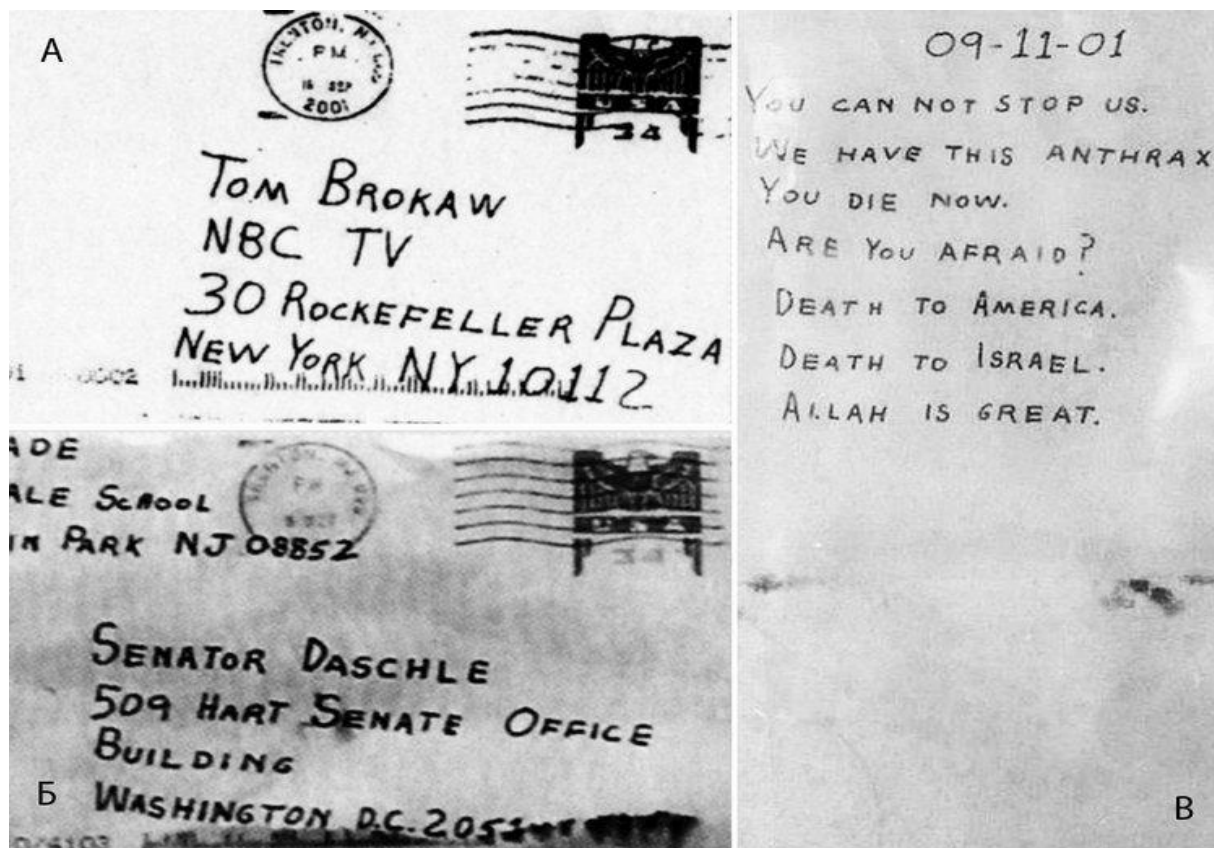 А
TRENTON, NJ
PM
SEP
2001
USA
34
TOM BROKAW
NBC TV
30 ROCKEFELLER PLAZA
NEW YORK NY 10112
ADE
ALE SCHOOL
IN PARK NJ 08852
34
SENATOR DASCHLE
509 HART SENATE OFFICE
BUILDING
WASHINGTON D.C.
Б
09-11-01
YOU CAN NOT STOP US.
WE HAVE THIS ANTHRAX
YOU DIE NOW.
ARE YOU AFRAID?
DEATH TO AMERICA.
DEATH TO ISRAEL.
ALLAH IS GREAT.
В